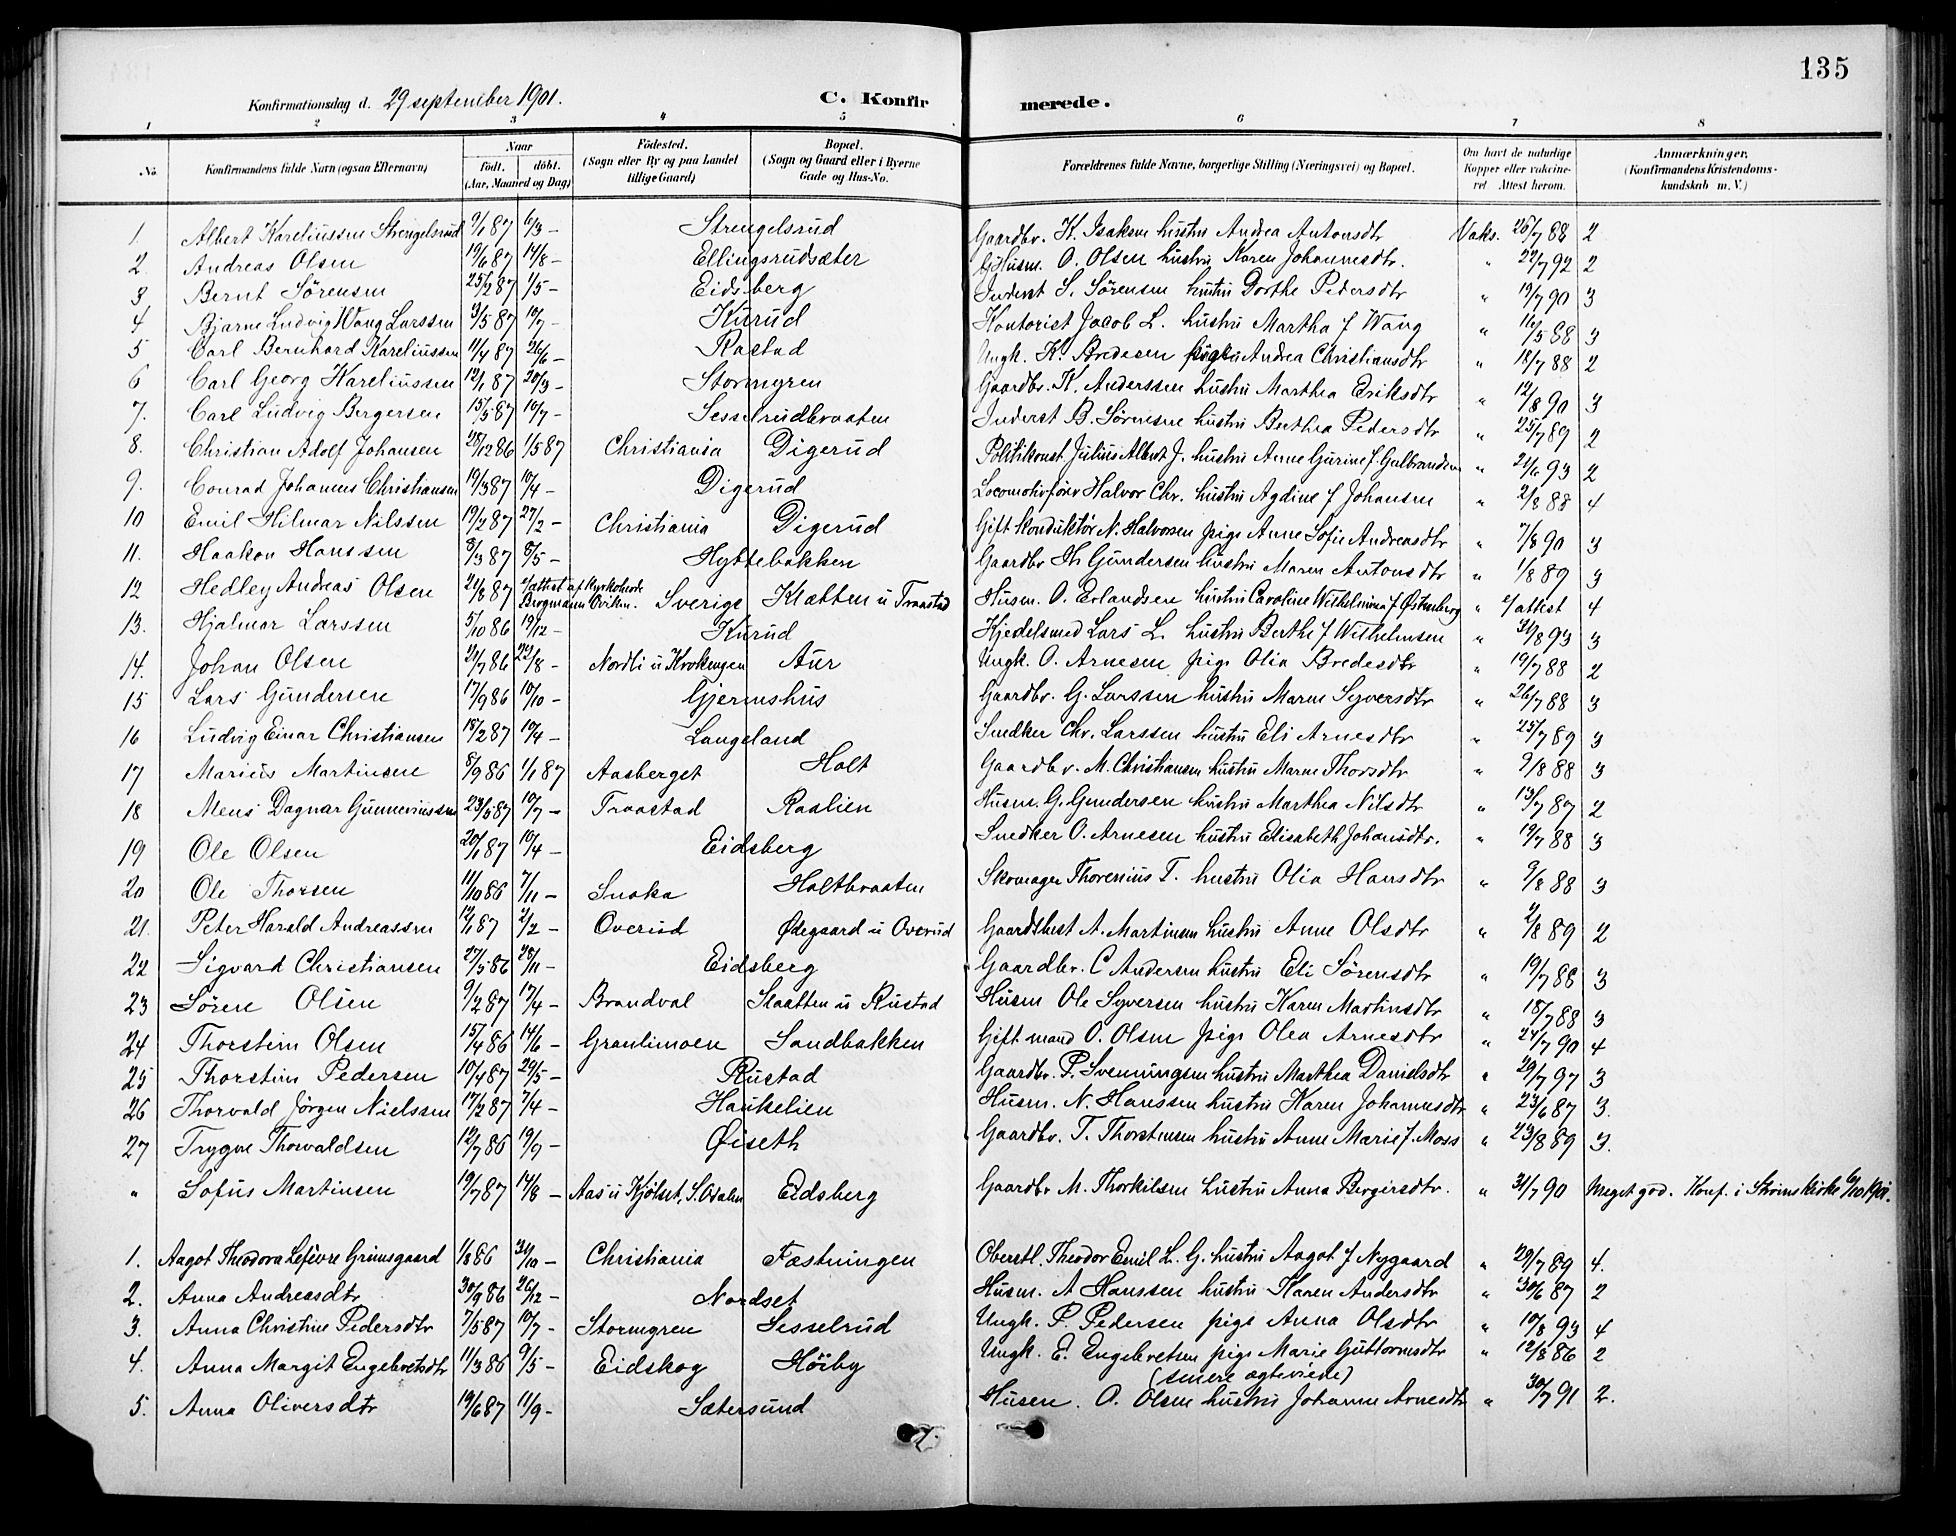 135
Konfirmationsdag d. 29 september 1901. C. Konfirmerede.
1 2 3 4 5 6 7 8
No Konfirmandens fulde Navn (ogsaa Efternavn) Naar født. døbt. (Aar, Maaned og Dag) Fødested. (Sogn eller By og paa Landet tillige Gaard) Bopæl. (Sogn og Gaard eller i Byerne Gade og Hus-No. Forældrenes fulde Navne, borgerlige Stilling (Næringsvei) og Bopæl. Om havt de naturlige Kopper eller vakcineret Attest herom. Anmærkninger. (Konfirmandens Kristendomskundskab m. V.)
1. Albert Kareliussen Strengelsrud 9/1 87 6/3 – Strengelsrud Gaardbr. K. Isaksen hustru Andrea Antonsdtr Vaks. 26/7 88 2
2. Andreas Olsen 19/6 87 14/8 – Ellingsrudsæter Husm. O. Olsen hustru Karen Johannesdtr. " 22/7 92 2
3 Bernt Sörensen 25/2 87 1/5 – Eidsberg Inderst S. Sörensen hustru Dorthe Pedersdtr " 19/7 90 3
4 Bjarne Ludvig Wang Larssen 3/5 87 10/7 – Kurud Kontorist Jacob L. hustru Martha f Wang " 16/5 88 3
5 Carl Bernhard Kareliussen 11/4 87 26/6 – Rastad Ungk. K. Bredesen pige Andrea Christiansdtr " 18/7 88 2
6 Carl Georg Kareliussen 12/1 87 20/3 – Stormyren Gaardbr. K. Anderssen hustru Marthea Eriksdtr " 12/8 90 3
7. Carl Ludvig Bergersen 15/5 87 10/7 – Sesselrudbraaten Inderst B. Sörensen hustru Berthea Pedersdtr " 25/7 89 2
8. Christian Adolf Johansen 28/12 86 1/5 87 Christiania Digerud Politikonst. Julius Albert J. hustru Anne Gurine f. Gulbrandsen " 21/6 93 2
9. Conrad Johannes Christiansen 19/3 87 10/4 – Digerud Locomotivfører Halvor Chr. hustru Agdine f Johansen " 2/8 88 4
10 Emil Hilmar Nilssen 19/2 87 27/2 – Christiania Digerud Gift konduktör N. Halvorsen pige Anne Sofie Andreasdtr " 7/8 90 3
11. Haakon Hanssen 8/3 87 8/5 – Hyttebakken Gaardbr H. Gundersen hustru Maren Antonsdtr " 1/8 89 3
12 Hedley Andreas Olsen 21/8 87 e/attest af Kyrkoherde Bergmann Oviken. Sverige Klætten u Traastad Husm. O. Erlandsen hustru Caroline Wilhelmina f Østerberg " e/attest 4
13. Hjalmar Larssen 5/10 86 19/12 – Kurud Kjedelsmed Lars L. hustru Berthe f Wilhelmsen " 31/8 93 3
14. Johan Olsen 21/7 86 22/8 – Nordli u Kroksengen Aur Ungk. O. Arnesen pige Olia Bredesdtr " 19/7 88 2
15 Lars Gundersen 17/9 86 10/10 – Gjermshus Gaardbr. G. Larssen hustru Maren Syversdtr " 26/7 88 3
16 Ludvig Einar Christiansen 18/2 87 10/4 – Langeland Snedker Chr. Larssen hustru Eli Arnesdtr " 25/7 89 3
17 Marius Martinsen 8/9 86 1/1 87 Aasberget Holt Gaardbr. M. Christiansen hustru Maren Thorsdtr " 9/8 88 3
18 Mens Dagnar Gunneriussen 23/5 87 10/7 – Traastad Raalien Husm. G. Gundersen hustru Marthea Nilsdtr " 13/7 87 2
19 Ole Olsen 20/1 87 10/4 – Eidsberg Snedker O. Arnesen hustru Elisabeth Johansdtr. " 19/7 88 3
20 Ole Thorsen 11/10 86 7/11 – Snoka Holtbraaten Skomager Thorenius T. hustru Olia Hansdtr " 9/8 88 3
21. Peter Harald Andreassen 12/1 87 2/2 – Overud Ødegaard u Overud Gaardsbest A. Martinsen hustru Anne Olsdtr " 2/8 89 2
22 Sigvard Christiansen 27/5 86 28/11 – Eidsberg Gaardbr. C Andersen hustru Eli Sörensdtr " 19/7 88 3
23 Sören Olsen 9/2 87 17/4 – Brandval Slaatten u Rustad Husm Ole Syversen hustru Karen Martinsdtr " 18/7 88 3
24 Thorstein Olsen 15/4 86 14/6 – Granlimoen Sandbakken Gift mand O. Olsen pige Olea Arnesdtr " 24/7 90 4
25 Thorstein Pedersen 10/4 87 29/5 – Rustad Gaardbr. P. Svenningsen hustru Marthea Danielsdtr " 29/7 97 3
26 Thorvald Jörgen Nielssen 17/2 87 7/4 – Haukelien Husm. N. Hanssen hustru Karen Johannesdtr " 23/6 87 3.
27 Trygve Thorvaldsen 12/7 86 19/9 – Øiseth Gaardbr. T. Thorstensen hustru Anne Marie f. Moss " 23/8 89 3.
" Sofus Martinsen 19/7 87 14/8 – Aas u Kjölset, S. Odalen Eidsberg Gaardbr M. Thorkilsen hustru Anna Bergersdtr. " 31/7 90 Meget god. Konf. i Ströms kirke 6/10 1901.
1. Aagot Theodora Lefèvre Grimsgaard 1/8 86 31/10 – Christiania Fæstningen Oberstl. Theodor Emil L. G. hustru Aagot f Nygaard " 29/7 89 4.
2. Anna Andreasdtr 30/9 86 26/12 – Nordset Husm. A Hanssen hustru Karen Andersdtr " 30/6 87 2
3. Anna Christine Pedersdtr 7/5 87 10/7 – Stormyren Sesselrud Ungk. P. Pedersen pige Anna Olsdtr " 10/8 93 4
4. Anna Margit Engebretsdtr 11/3 86 9/5 – Eidskog Höiby Ungk. E. Engebretsen pige Marie Guttormsdtr " 12/8 86 2
(senere ægteviede)
5. Anna Oliversdtr 19/6 87 11/9 – Sætersund Husm. O. Olsen hustru Johanne Arnesdtr " 30/7 91 2.